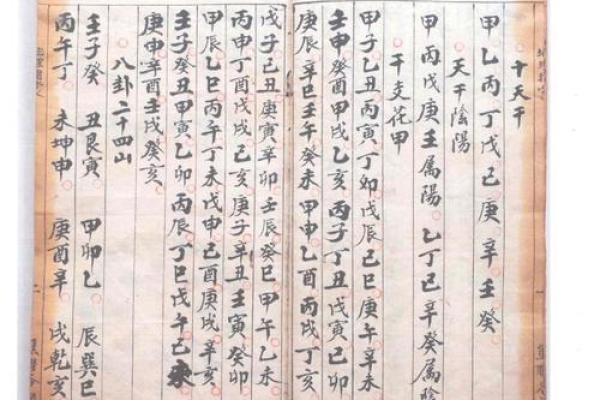 十天干
甲乙丙丁戊己庚辛壬癸
天干陰陽
甲丙戊庚壬属陽 乙丁己辛癸属陰
干支花甲
甲子乙丑丙寅丁卯戊辰己巳庚午辛未
壬申癸酉甲戌乙亥丙子丁丑戊寅己卯
庚辰辛巳壬午癸未甲申乙酉丙戌丁亥
戊子己丑庚寅辛卯壬辰癸巳甲午乙未
丙申丁酉戊戌己亥庚子辛丑壬寅癸卯
甲辰乙巳丙午丁未戊申己酉庚戌辛亥
壬子癸丑甲寅乙卯丙辰丁巳戊午己未
庚申辛酉壬戌癸亥
八卦二十四山
壬子癸 丑艮寅 甲卯乙 辰巽巳
丙午丁 未坤申 庚酉辛 戌乾亥